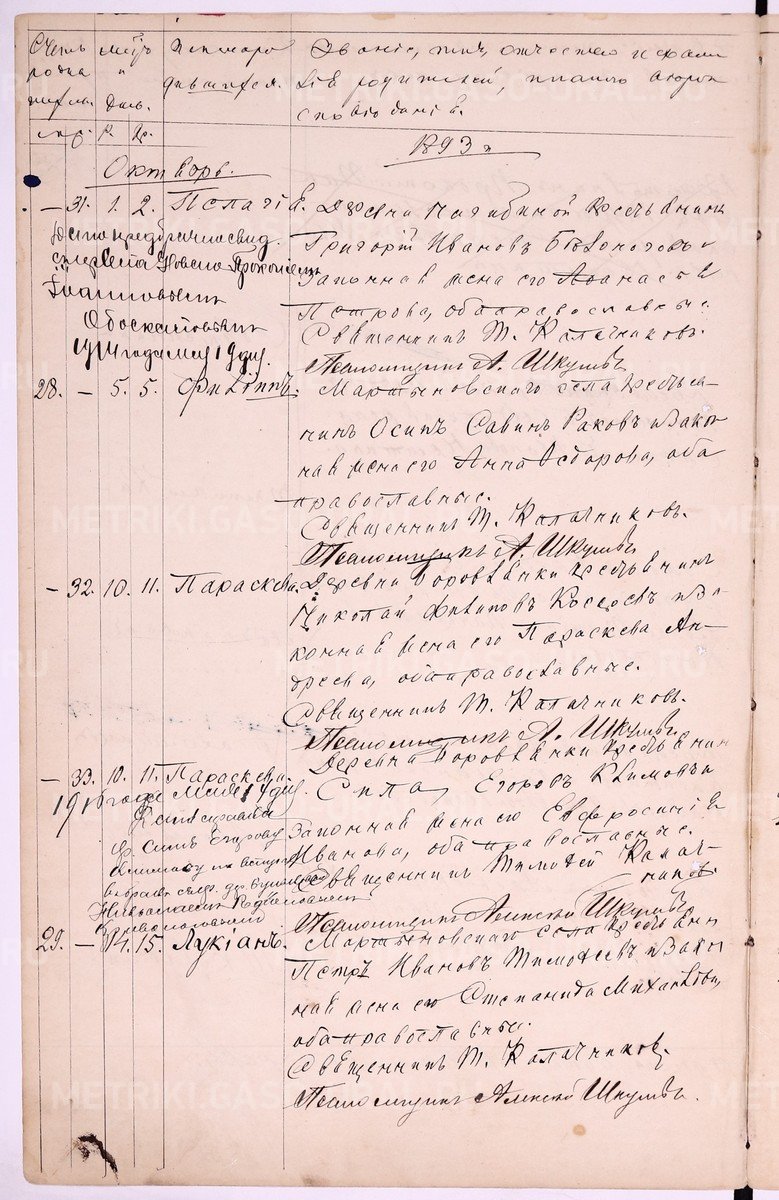 Счетъ мѣсяцъ Имя родив Званіе, имя, отчество и фами
родив и шагося. лія родителей, и какого вѣро
шихся. день. исповѣданія.
р. кр. 1893 г.
Октябрь.
— 31. 1. 2. Пелагія. Деревни Нагибиной крестьянинъ
Дано предбрачное свид. Григорій Ивановъ Бѣлоноговъ и
законная жена его Аѳанасія
Петрова, оба православные.
1914 года мая 19 дня. Священникъ Т. Калачниковъ.
Псаломщикъ А. Шкулевъ
28. — 5. 5. Филиппъ. Мартыновскаго села крестья-
нинъ Осипъ Савинъ Раковъ и закон
ная жена его Анна Ѳедорова, оба
православные.
Священникъ Т. Калачниковъ.
Псаломщикъ А. Шкулевъ
— 32. 10. 11. Параскева. Деревни Боровлянки крестьянинъ
Николай Филиповъ и за-
конная жена его Параскева Ан-
дреева, оба православные.
Священникъ Т. Калачниковъ.
Псаломщикъ А. Шкулевъ
— 33. 10. 11. Параскева. Деревни Боровлянки крестьянин
Сила Егоровъ Климовъ и
законная жена его Евфросинія
Иванова, оба православные.
Священникъ Тимоѳей Калач-
никовъ.
Псаломщикъ Алексѣй Шкулевъ
29. — 14. 15. Лукіанъ. Мартыновскаго села крестьянин
Петръ Ивановъ Тимоѳеевъ и закон
ная жена его Степанида Михайлова,
оба православные.
Священникъ Т. Калачниковъ.
Псаломщикъ Алексѣй Шкулевъ.